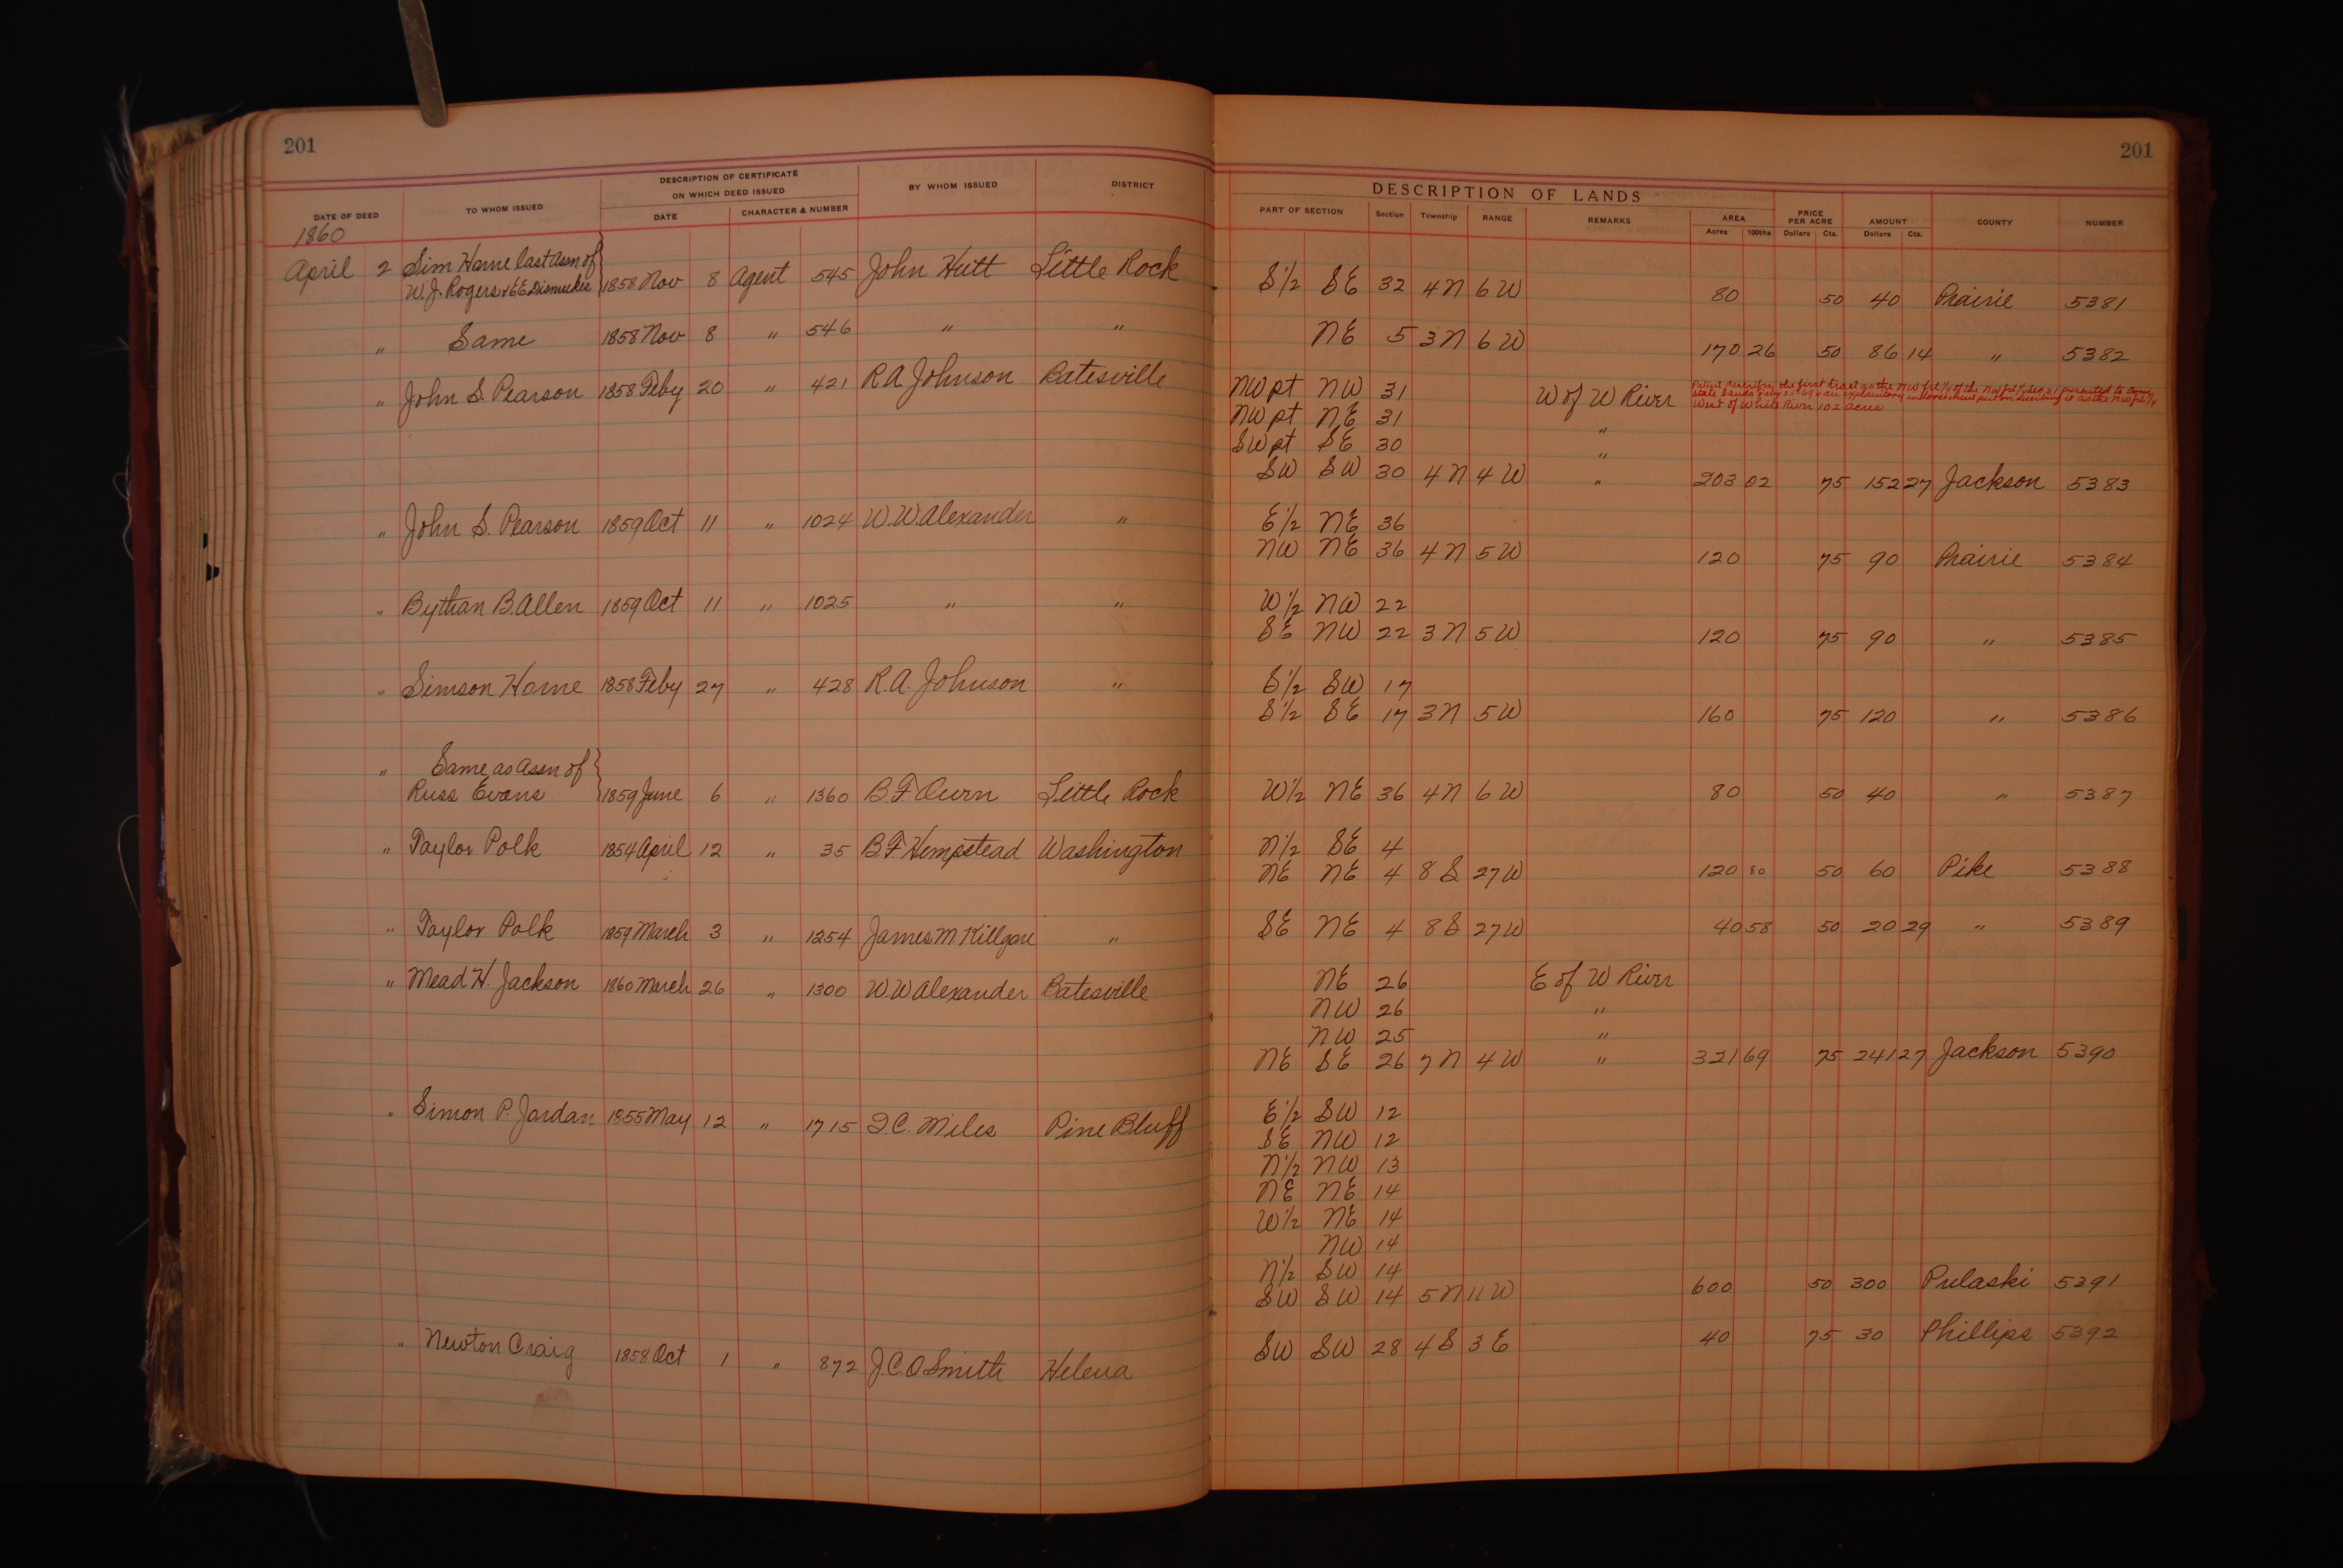 201
201
DESCRIPTION OF CERTIFICATE
ON WHICH DEED ISSUED
DATE OF DEED TO WHOM ISSUED DATE CHARACTER & NUMBER BY WHOM ISSUED DISTRICT
DESCRIPTION OF LANDS
PART OF SECTION Section Township RANGE REMARKS AREA PRICE PER ACRE AMOUNT COUNTY NUMBER
Acres 100ths Dollars Cts. Dollars Cts.
1860
April 2 Sim Horne last Assn of
W. J. Rogers & E E Dismukes 1858 Nov 8 Agent 545 John Hutt Little Rock S 1/2 SE 32 4N 6W 80 50 40 Prairie 5381
" Same 1858 Nov 8 " 546 " " NE 5 3N 6W 170 26 50 86 14 " 5382
" John S. Pearson 1858 Feby 20 " 421 R A Johnson Batesville NW pt NW 31 W of W River
Patent describing the first tract as the NW frl 1/4 of the NW frl 1/4 Sec 31 presented to
West of White River 102 acres
NW pt NE 31 "
SW pt SE 30 "
SW SW 30 4N 4W " 203 02 75 152 27 Jackson 5383
" John S. Pearson 1859 Oct 11 " 1024 W. W. Alexander " E 1/2 NE 36
NW NE 36 4N 5W 120 75 90 Prairie 5384
" Bythan B. Allen 1859 Oct 11 " 1025 " " W 1/2 NW 22
SE NW 22 3N 5W 120 75 90 " 5385
" Simson Horne 1858 Feby 27 " 428 R. A. Johnson " S 1/2 SW 17
S 1/2 SE 17 3N 5W 160 75 120 " 5386
" Same as Assn of
Russ Evans 1859 June 6 " 1360 B. F. Owen Little Rock W 1/2 NE 36 4N 6W 80 50 40 " 5387
" Taylor Polk 1854 April 12 " 35 B F Hempstead Washington N 1/2 SE 4
NE NE 4 8S 27W 120 80 50 60 Pike 5388
" Taylor Polk 1859 March 3 " 1254 James M Killgore " SE NE 4 8S 27W 40 58 50 20 29 " 5389
" Mead H. Jackson 1860 March 26 " 1300 W W Alexander Batesville NE 26 E of W River
NW 26 "
NW 25 "
NE SE 26 7N 4W " 321 69 75 241 27 Jackson 5390
" Simon P. Jordan 1855 May 12 " 1715 I. C. Miles Pine Bluff E 1/2 SW 12
SE NW 12
N 1/2 NW 13
NE NE 14
W 1/2 NE 14
NW 14
N 1/2 SW 14
SW SW 14 5N 11W 600 50 300 Pulaski 5391
" Newton Craig 1858 Oct 1 " 872 J. C. O Smith Helena SW SW 28 4S 3E 40 75 30 Phillips 5392